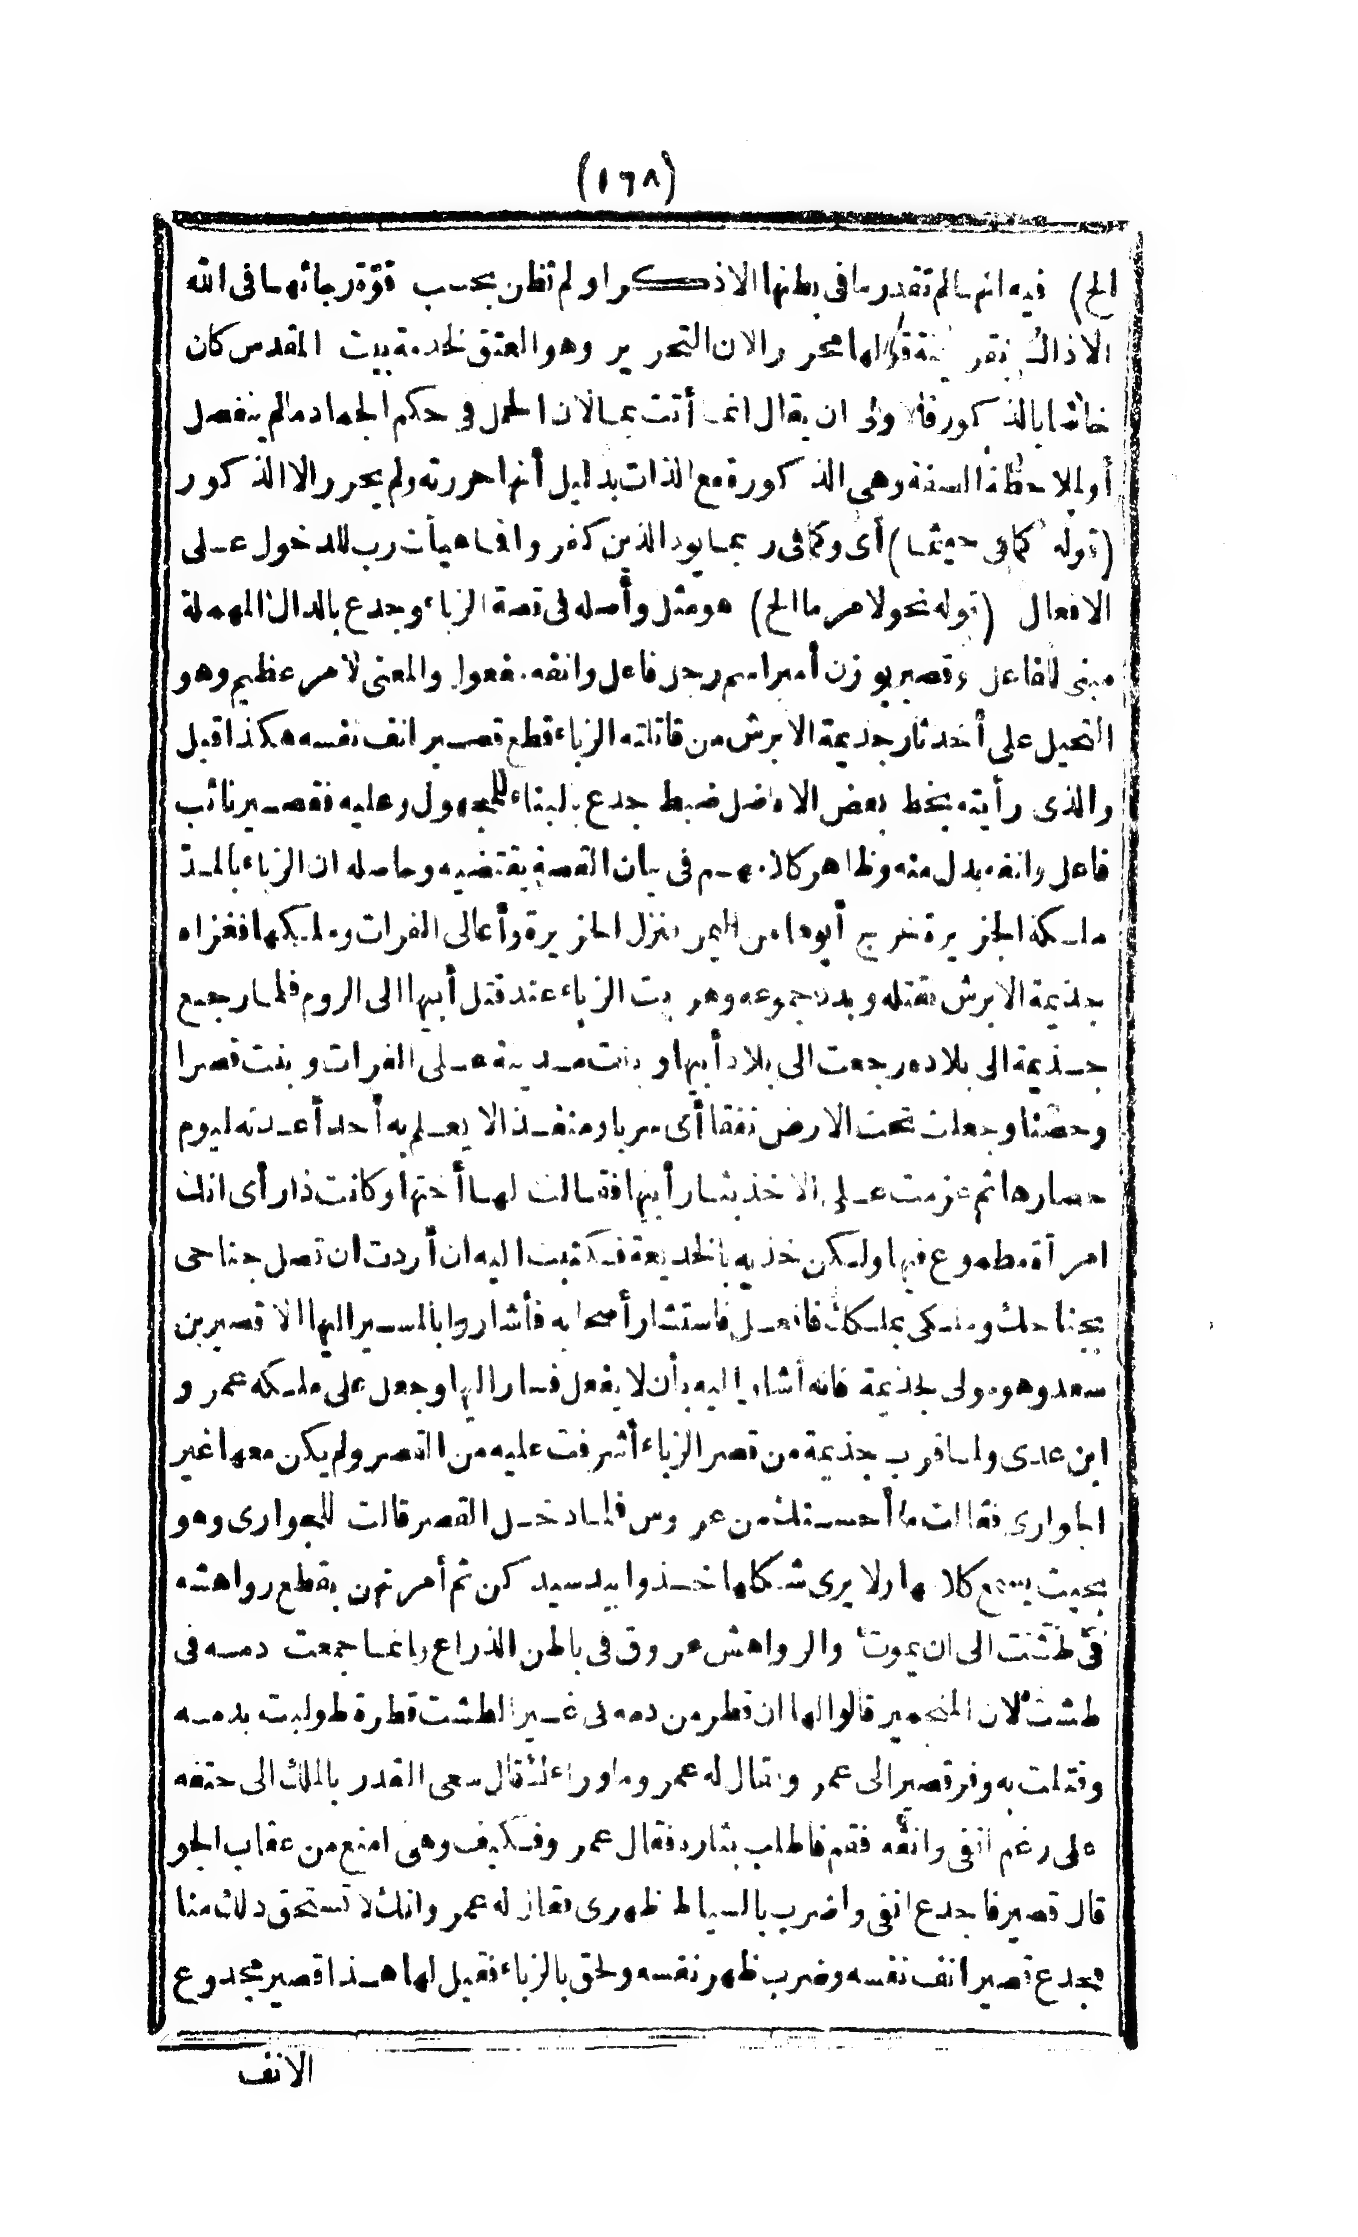 (١٦٨)
الخ) فيه انها لم تقدر ما فى بطنها الا ذكرا ولم تظن بحسب قوّة رجائها فى الله
الا ذاك بقرينة قولها محررا لان التحرير وهو العتق لخدمة بيت المقدس كان
خاصا بالذكور فالاولى ان يقال انما أتت بما لان الحمل فى حكم الجماد ما لم ينفصل
أو لملاحظة الصفة وهى الذكورة مع الذات بدليل أنها حررته ولم يحرر الا الذكور
(قوله كما فى حيثما) أى وكما فى ربما يود الذين كفروا فما هيأت رب للدخول على
الافعال (قوله نحو لامر ما الخ) هو مثل وأصله فى قصة الزباء وجدع بالدال المهملة
مبنى للفاعل وقصير بوزن أمير اسم رجل فاعل وانفه مفعول والمعنى لامر عظيم وهو
التحيل على أخذ ثار جذيمة الابرش من قاتلته الزباء قطع قصير انف نفسه هكذا قيل
والذى رأيته بخط بعض الافاضل ضبط جدع بالبناء للمجهول وعليه فقصير نائب
فاعل وانفه بدل منه وظاهر كلامهم فى بيان القصة يقتضيه وحاصله ان الزباء بالمدّ
ملكة الجزيرة خرج أبوها من اليمن فنزل الجزيرة وأعالى الفرات وملكها فغزاه
جذيمة الابرش فقتله وبدد جموعه وهربت الزباء عند قتل أبيها الى الروم فلما رجع
جذيمة الى بلاده رجعت الى بلاد أبيها وبنت مدينة على الفرات وبنت قصرا
وحصنا وجعلت تحت الارض نفقا أى سربا ومنفذا لا يعلم به أحد أعدته ليوم
حصارها ثم عزمت على الاخذ بثار أبيها فقالت لها أختها وكانت ذا رأى انك
امرأة مطموع فيها ولكن خذيه بالخديعة فكتبت اليه ان أردت ان تصل جناحى
بجناحك وملكى بملكك فافعل فاستشار أصحابه فأشاروا بالمسير اليها الا قصير بن
سعد وهو مولى لجذيمة فانه أشار اليه بأن لا يفعل فسار اليها وجعل على ملكه عمرو
ابن عدى ولما قرب جذيمة من قصر الزباء أشرفت عليه من القصر ولم يكن معها غير
الجوارى فقالت ما أحسنك من عروس فلما دخل القصر قالت للجوارى وهو
بحيث يسمع كلامها ولا يرى شكلها خذوا بيد سيدكن ثم أمرتهن بقطع رواهشه
فى طشت الى ان يموت والرواهش عروق فى باطن الذراع وانما جمعت دمه فى
طشت لان المنجمين قالوا لها ان قطر من دمه فى غير الطشت قطرة طولبت بدمه
وقتلت به وفر قصير الى عمرو فقال له عمرو ما وراءك قال سعى القدر بالملك الى حتفه
على رغم انفى وانفه فقم فاطلب بثاره فقال عمرو وكيف وهى امنع من عقاب الجو
قال قصير فاجدع انفى واضرب بالسياط ظهرى فقال له عمرو انك لا تستحق ذلك منا
فجدع قصير انف نفسه وضرب ظهر نفسه ولحق بالزباء فقيل لها هذا قصير مجدوع
الانف